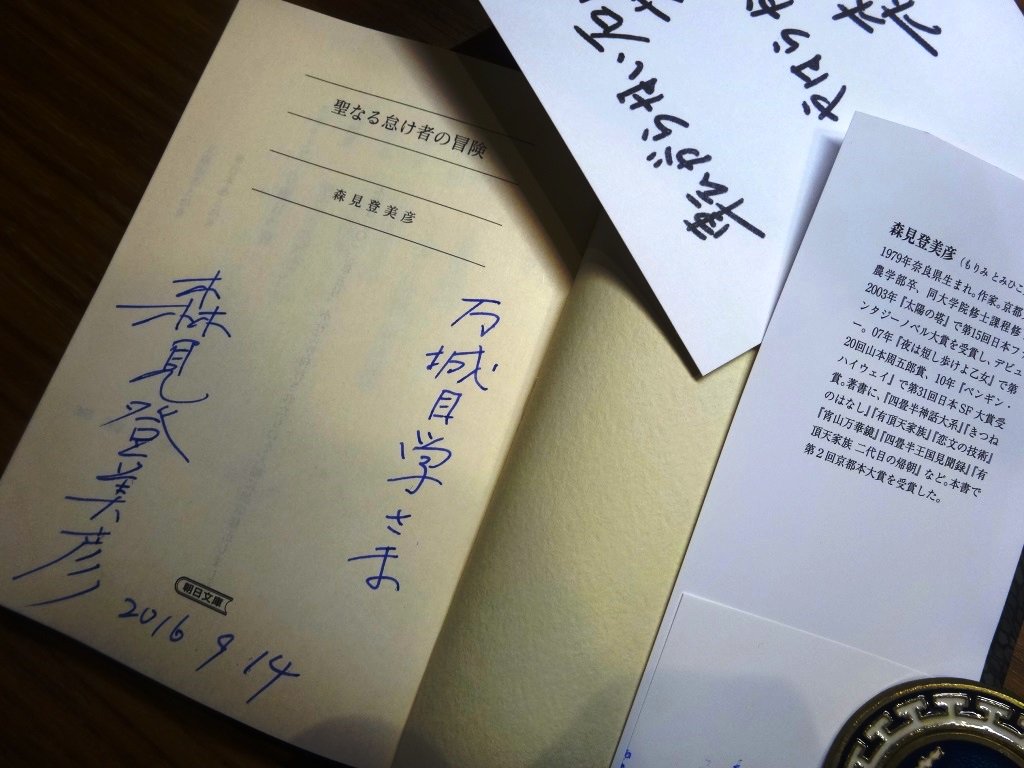 聖なる怠け者の冒険
森見登美彦
万城目学さま
森見登美彦
朝日文庫
2016.9.14
転がらない
やはらか
森見登美彦（もりみ とみひこ
1979年奈良県生まれ。作家。京都
農学部卒、同大学院修士課程修
2003年『太陽の塔』で第15回日本ファ
ンタジーノベル大賞を受賞し、デビュ
ー。07年『夜は短し歩けよ乙女』で第
20回山本周五郎賞、10年『ペンギン・
ハイウェイ』で第31回日本SF大賞受
賞。著書に、『四畳半神話大系』『きつね
のはなし』『有頂天家族』『恋文の技術』
『宵山万華鏡』『四畳半王国見聞録』『有
頂天家族 二代目の帰朝』など。本書で
第２回京都本大賞を受賞した。